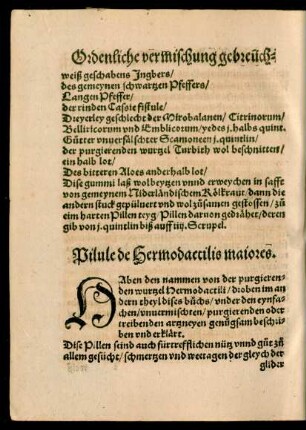 Ordenliche vermischung gebreüch-
weiß geschabens Ingbers/
des gemeynen schwartzen Pfeffers/
Langen Pfeffer/
der rinden Cassie fistule/
Dreyerley geschlecht der Mirobalanen/ Citrinorum/
Belliricorum vnd Emblicorum/ yedes j. halbs quint.
Gütter vnuerfälschter Scamoneen j. quintlin/
der purgierenden wurtzel Turbith wol beschnitten/
ein halb lot/
Des bitteren Aloes anderhalb lot/
Dise gummi laß wol beytzen vnnd erweychen in saffe
von gemeynem Niderländischem Kölkraut/ dann die
andern stuck gepüluert vnd wol züsamen gestossen/ zü
eim harten Pillen teyg. Pillen daruon gedräher/ deren
gib von j. quintlin biß auff iiij. Scrupel.
Pilule de Hermodactilis maiores.
HAben den nammen von der purgieren-
den wurtzel Hermodactili/ droben im an
dern theyl dises büchs/ vnder den eynfa-
chen/ vnuermischten/ purgierenden oder
treibenden artzneyen genügsam beschri-
ben vnd erklärt.
Dise Pillen seind auch fürtrefflichen nütz vnnd güt zü
allem gesücht/ schmertzen vnd weetagen der gleych der
glider